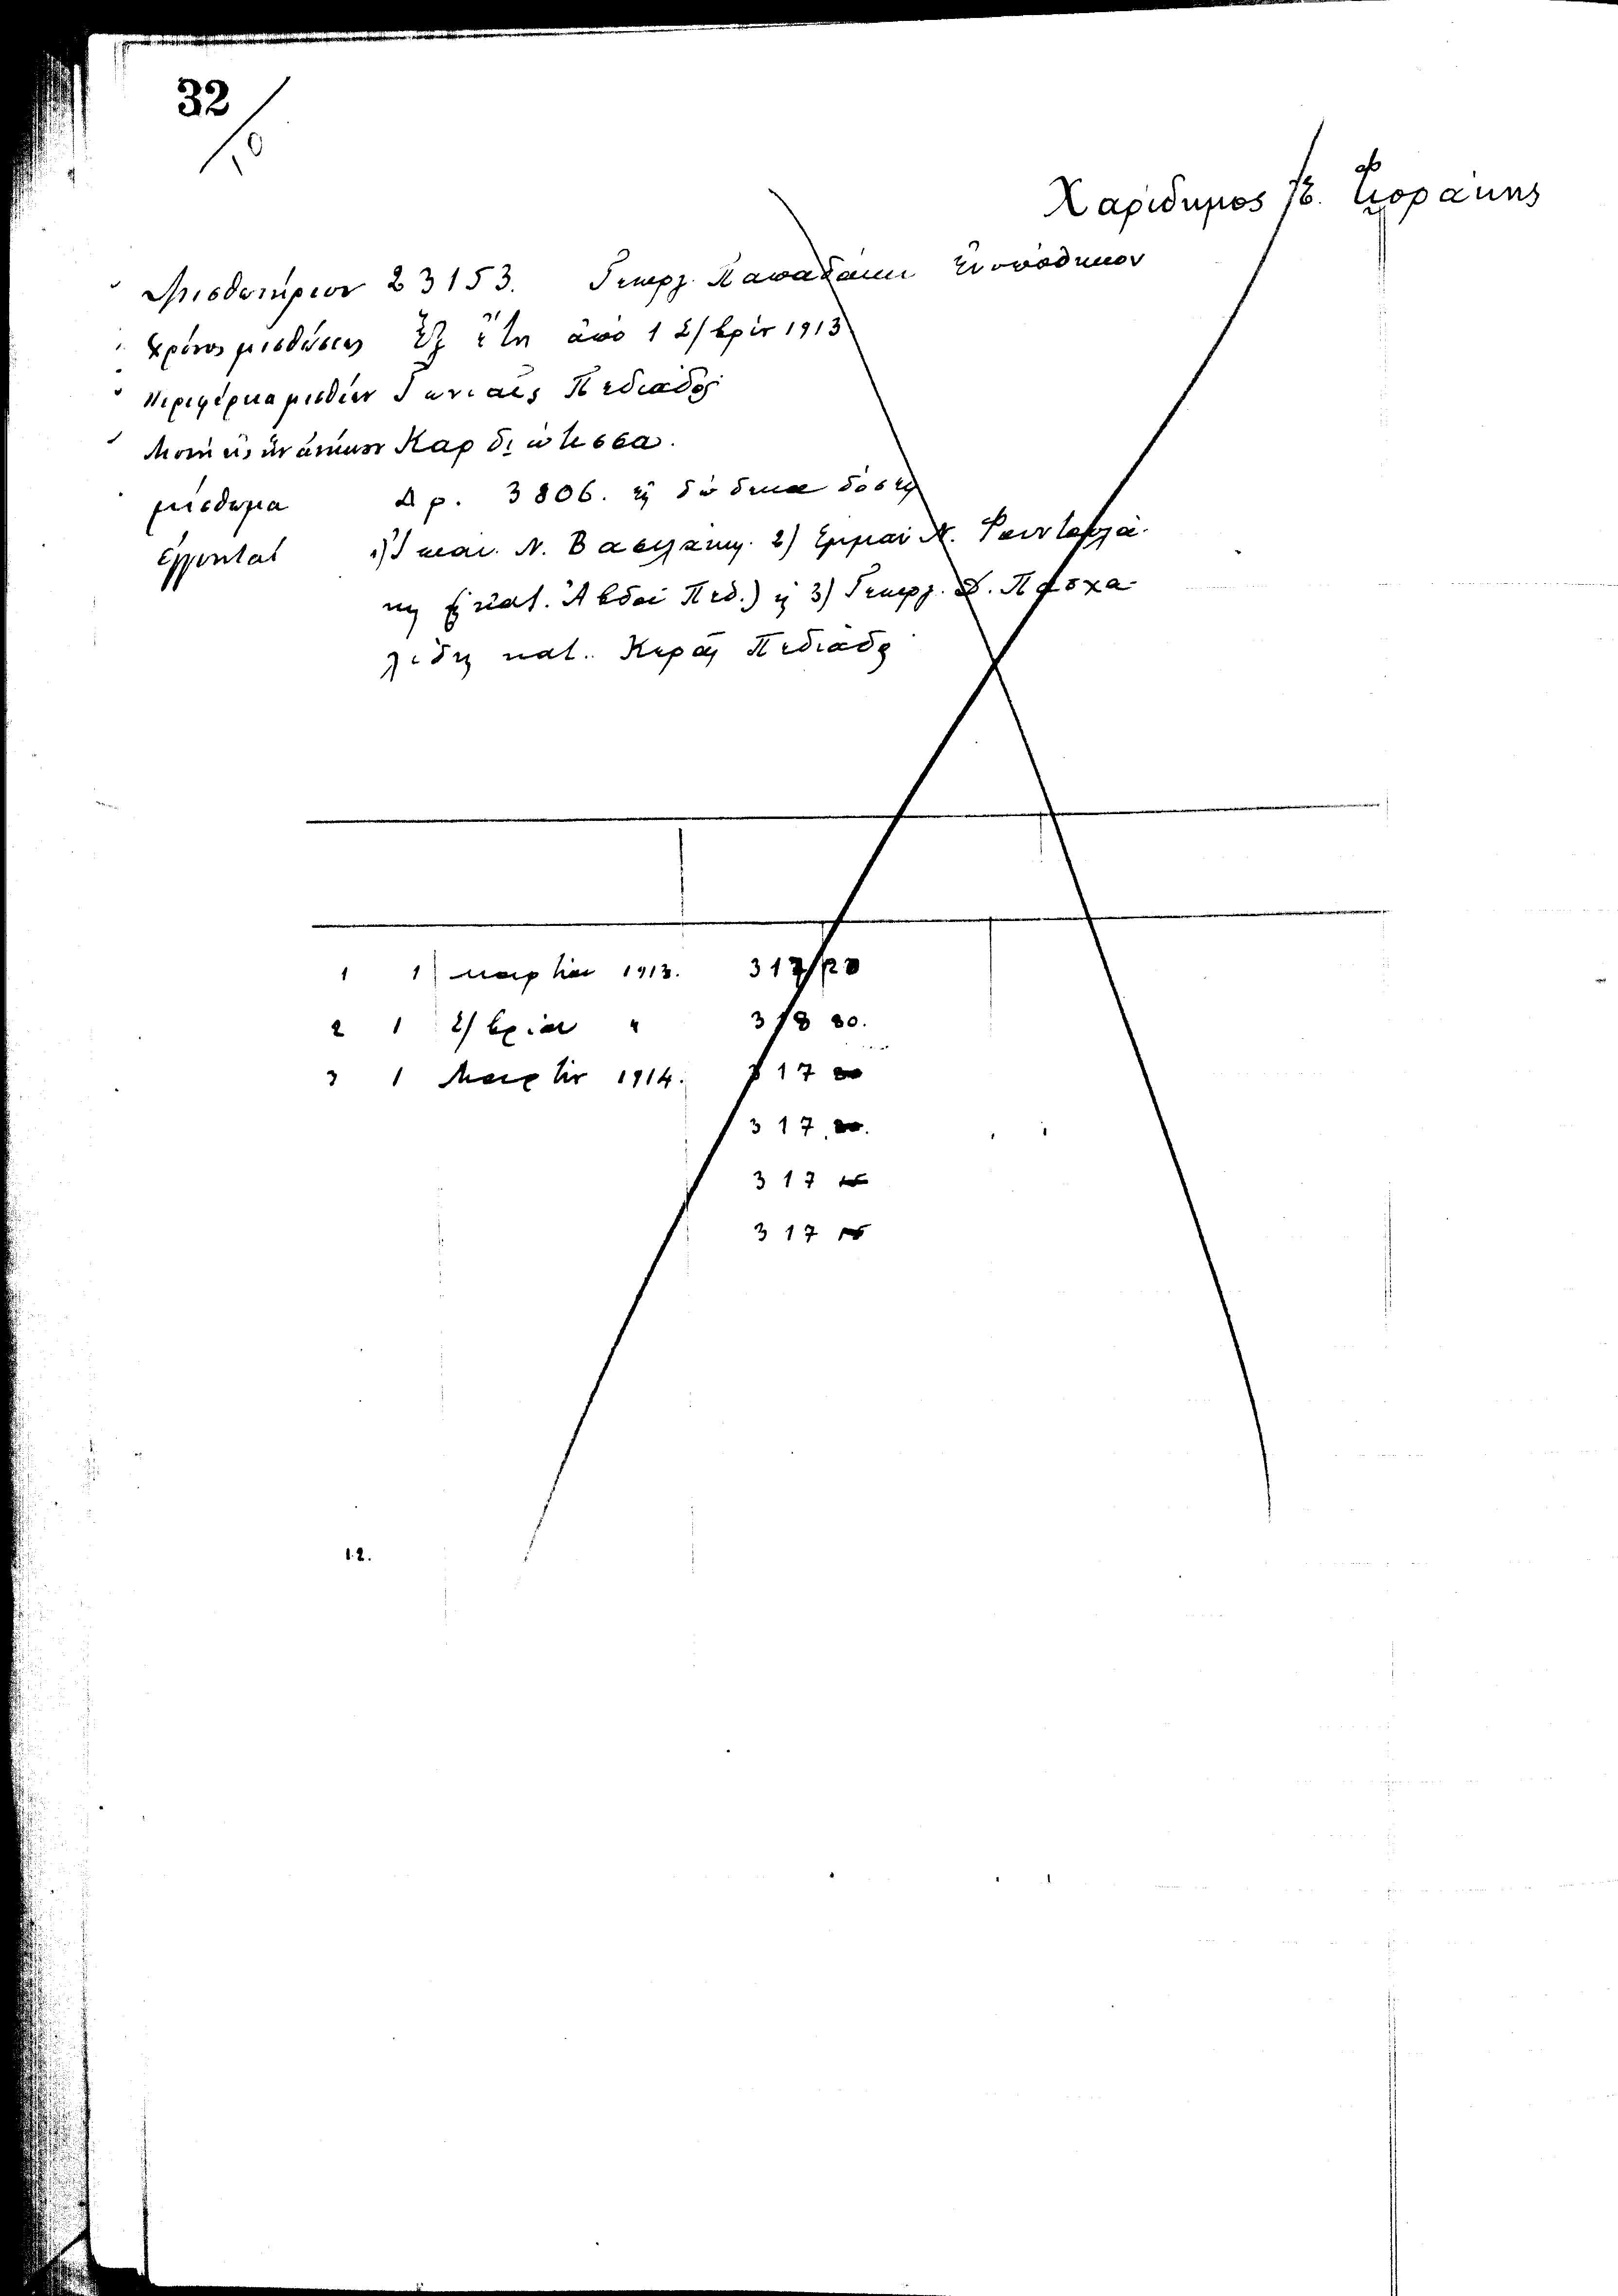 32
10
Χαρίδημος Ἐ.
Μισθωτήριον 23153. Γεωργ. Παπαδάκη Ἐνυπόθηκον
Χρόνος μισθώσεως Ἓξ ἔτη ἀπὸ 1 Σ/βρίου 1913
Περιφέρεια μισθίων Γωνιαῖς Πεδιάδος
Μονὴ εἰς ἣν ἀνήκουν Καρδιώτισσα.
μίσθωμα Δρ. 3806. εἰς δώδεκα δόσεις
Ἐγγυηταί 1) Ἰωαν. Ν. Βασιλάκης. 2) Ἐμμαν. Ν.
κης (κατ. Ἀβδοῦ Πεδ.) 3) Γεωργ. Δ. Πασχα-
λίδης κατ. Κερᾶς Πεδιάδος
1 1 Μαρτίου 1913. 317 20
2 1 Σ/βρίου " 318 80.
3 1 Μαρτίου 1914. 317
317
317
317
12.